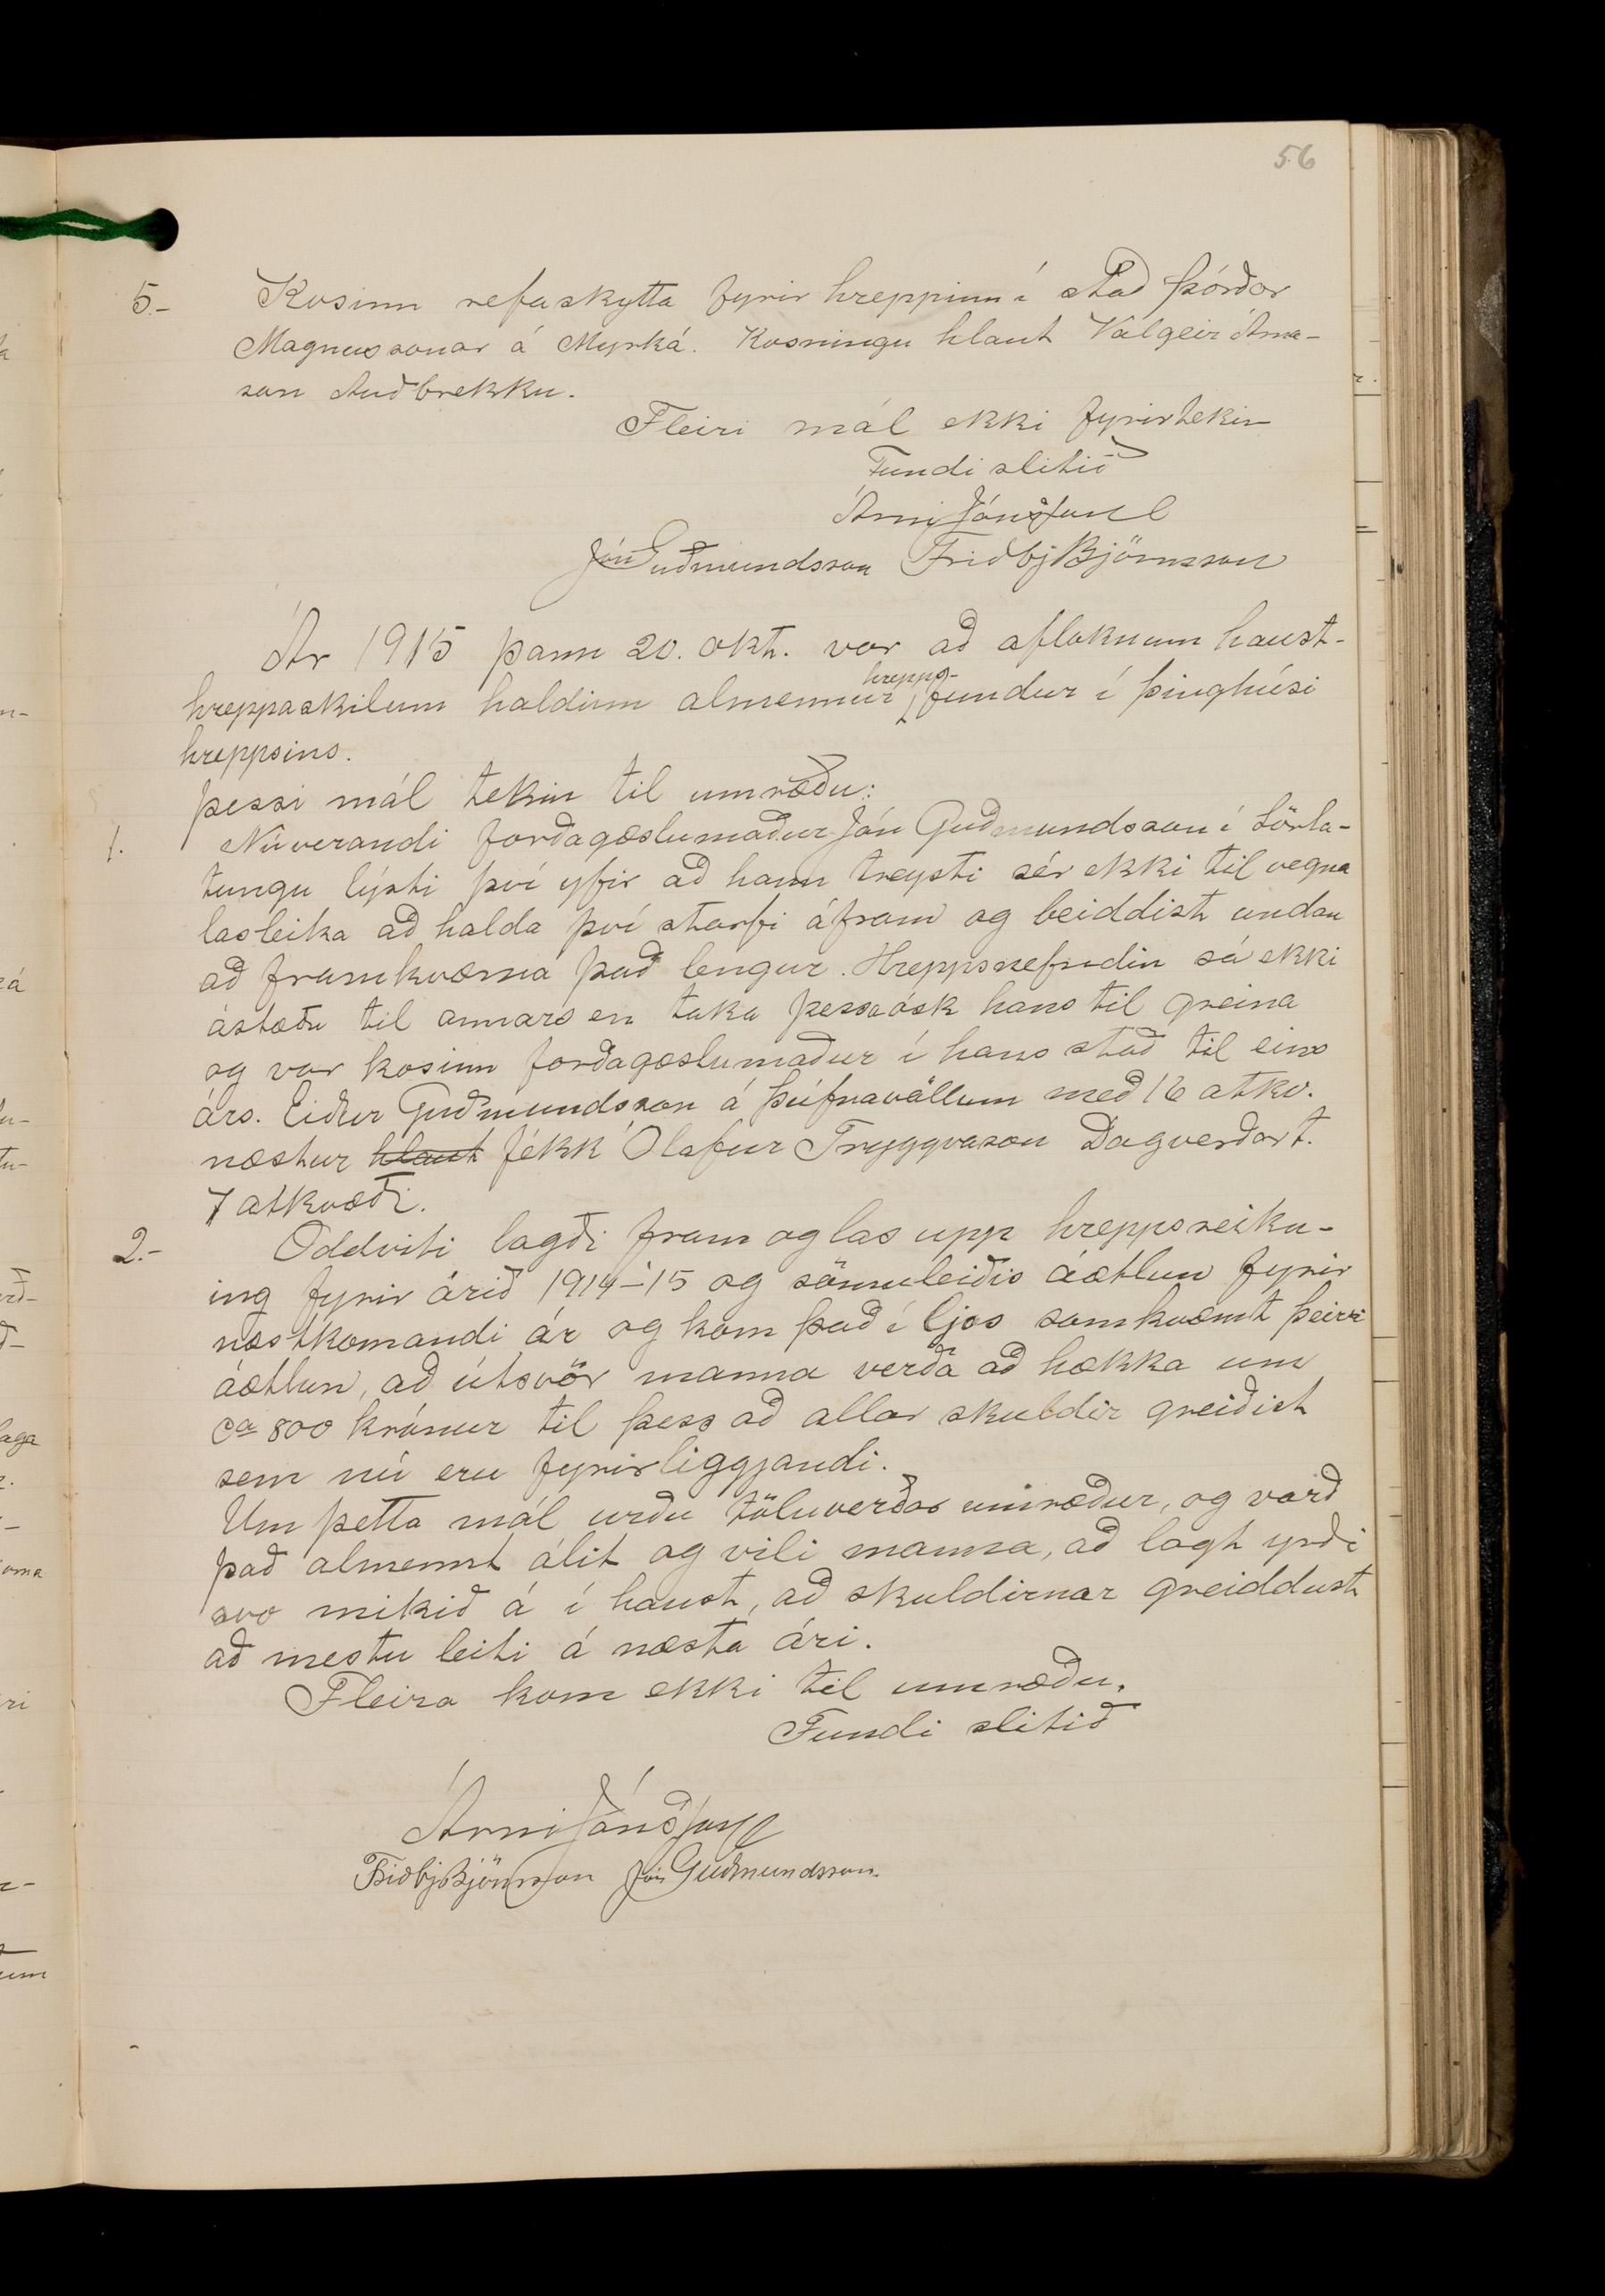 56
5.- Kosinn refaskytta fyrir hreppinn í stað Þórðar
Magnussonar á Myrká. Kosningu hlaut Valgeir Árna-
son Auðbrekku.
Fleiri mál ekki fyrirtekin
Fundi slitið
Árni Jónsson
Jón Guðmundsson Friðbj Björnsson
Ár 1915 þann 20. okt. var að afloknum haust-
hreppaskilum haldinn almennur hrepps- fundur í þinghúsi
hreppsins.
Þessi mál tekin til umræðu:
1. Núverandi forðagæslumaður Jón Guðmundsson í Sörla-
tungu lýsti því yfir að hann treysti sér ekki til vegna
lasleika að halda því starfi áfram og beiddist undan
að framkvæma það lengur. Hreppsnefndin sá ekki
ástæðu til annars en taka þessa ósk hans til greina
og var kosinn forðagæslumaður í hans stað til eins
árs. Eiður Guðmundsson á Þúfnavöllum með 16 atkv.
næstur hlaut fékk Ólafur Tryggvason Dagverðart.
7 atkvæði.
2.- Oddviti lagði fram og las upp hreppsreikn-
ing fyrir árið 1914-'15 og sömuleiðis áætlun fyrir
næstkomandi ár og kom það í ljos samkvæmt þeirri
áætlun, að útsvör manna verða að hækka um
ca 800 krónur til þess að allar skuldir greiðist
sem nú eru fyrirliggjandi.
Um þetta mál urðu töluverðar umræður, og varð
það almennt álit og vili manna, að lagt yrði
svo mikið á í haust, að skuldirnar greiddust
að mestu leiti á næsta ári.
Fleira kom ekki til umræðu.
Fundi slitið
Árni Jónsson
Friðbj Björnsson Jón Guðmundsson.